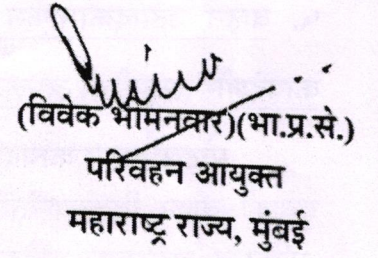 (विवेक भीमनवार)(भा.प्र.से.)
परिवहन आयुक्त
महाराष्ट्र राज्य, मुंबई